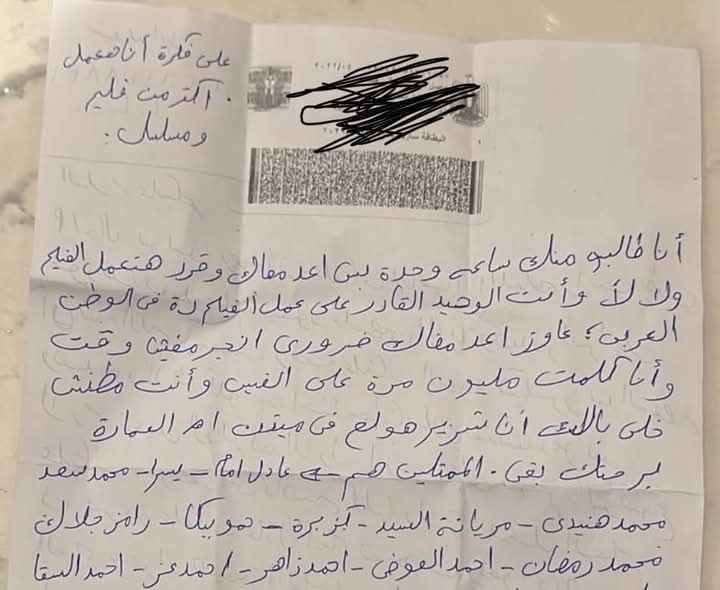 على فكرة أنا هعمل
أكتر من فيلم
ومسلسل.
٢٠٢٢/٠٤
البطاقة سارية
أنا طالب منك ساعه وحدة بس اعد معاك وقرر هتعمل الفيلم
ولا لأ وأنت الوحيد القادر على عمل الفيلم دة فى الوطن
العربى؛ عاوز اعد معاك ضرورى انجر مفيش وقت
وأنا كلمت مليون مرة على الفيس وأنت مطنش
خلى بالك أنا شرير هولع فى ميتين ام العمارة
لبرحتك بقى. الممثلين هم عادل امام - يسرا - محمد سعد
محمد هنيدى - مريانة السيد - كزبرة - حمو بيكا - رامز جلال
محمد رمضان - احمد العوضى - احمد زاهر - احمد عز - احمد السقا